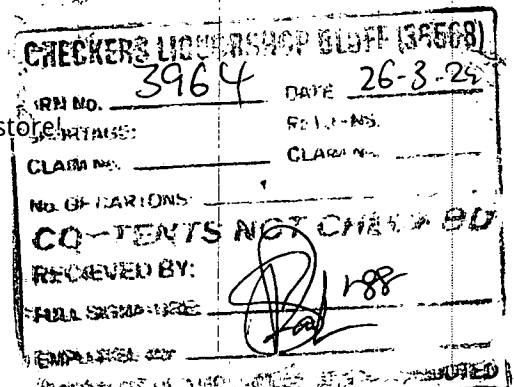 CHECKERS LIQUORSHOP BLUFF (38568)
GRN NO. 3964 DATE 26-3-24
store!
SHORTAGE: RETURNS.
CLAIM No. CLAIM No.
No. OF CARTONS:
CONTENTS NOT CHECKED
RECIEVED BY:
FULL SIGNATURE
EMPLOYEE